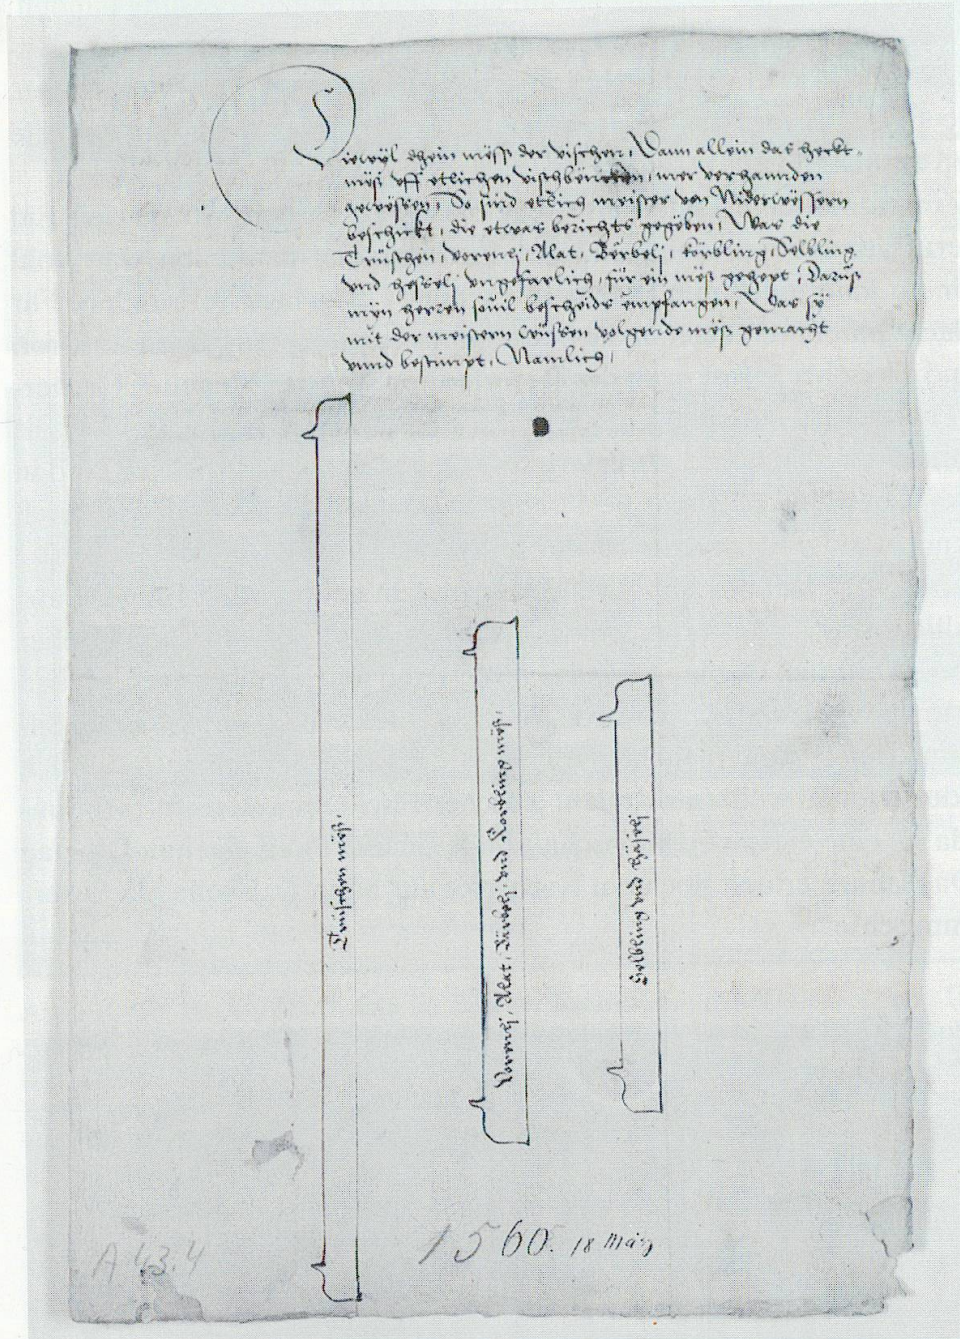 Diewyl dhein mëss der vischen, Dann allein das heckt-
mëss uff etlichen vischbëri, mer verhannden
gewëssen, So sind etlich meister von Niderwëssern
beschickt, die etwas berichts gegëben, Was die
Trüschen, vorenlj, Alat, Bërbelj, körbling, Selbling
und hesselj ungefarlich, für ein mëss gehept, Daruss
myn herren souil bescheids empfangen, Das sy
mit der meistern wüssen volgende mëss gemacht
vnnd bestimpt, Namlich,
Trüschen mëss,
Vorenlj, Alat, Bärbelj, und Körbling mëss,
Selbling und häselj,
1560. 18 März
A 43.4